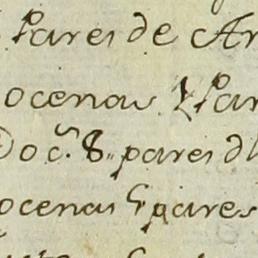 Pares de Ar
ocenas 1 Par
Doc.ˢ 8,, pares d
ocenas 5 pares